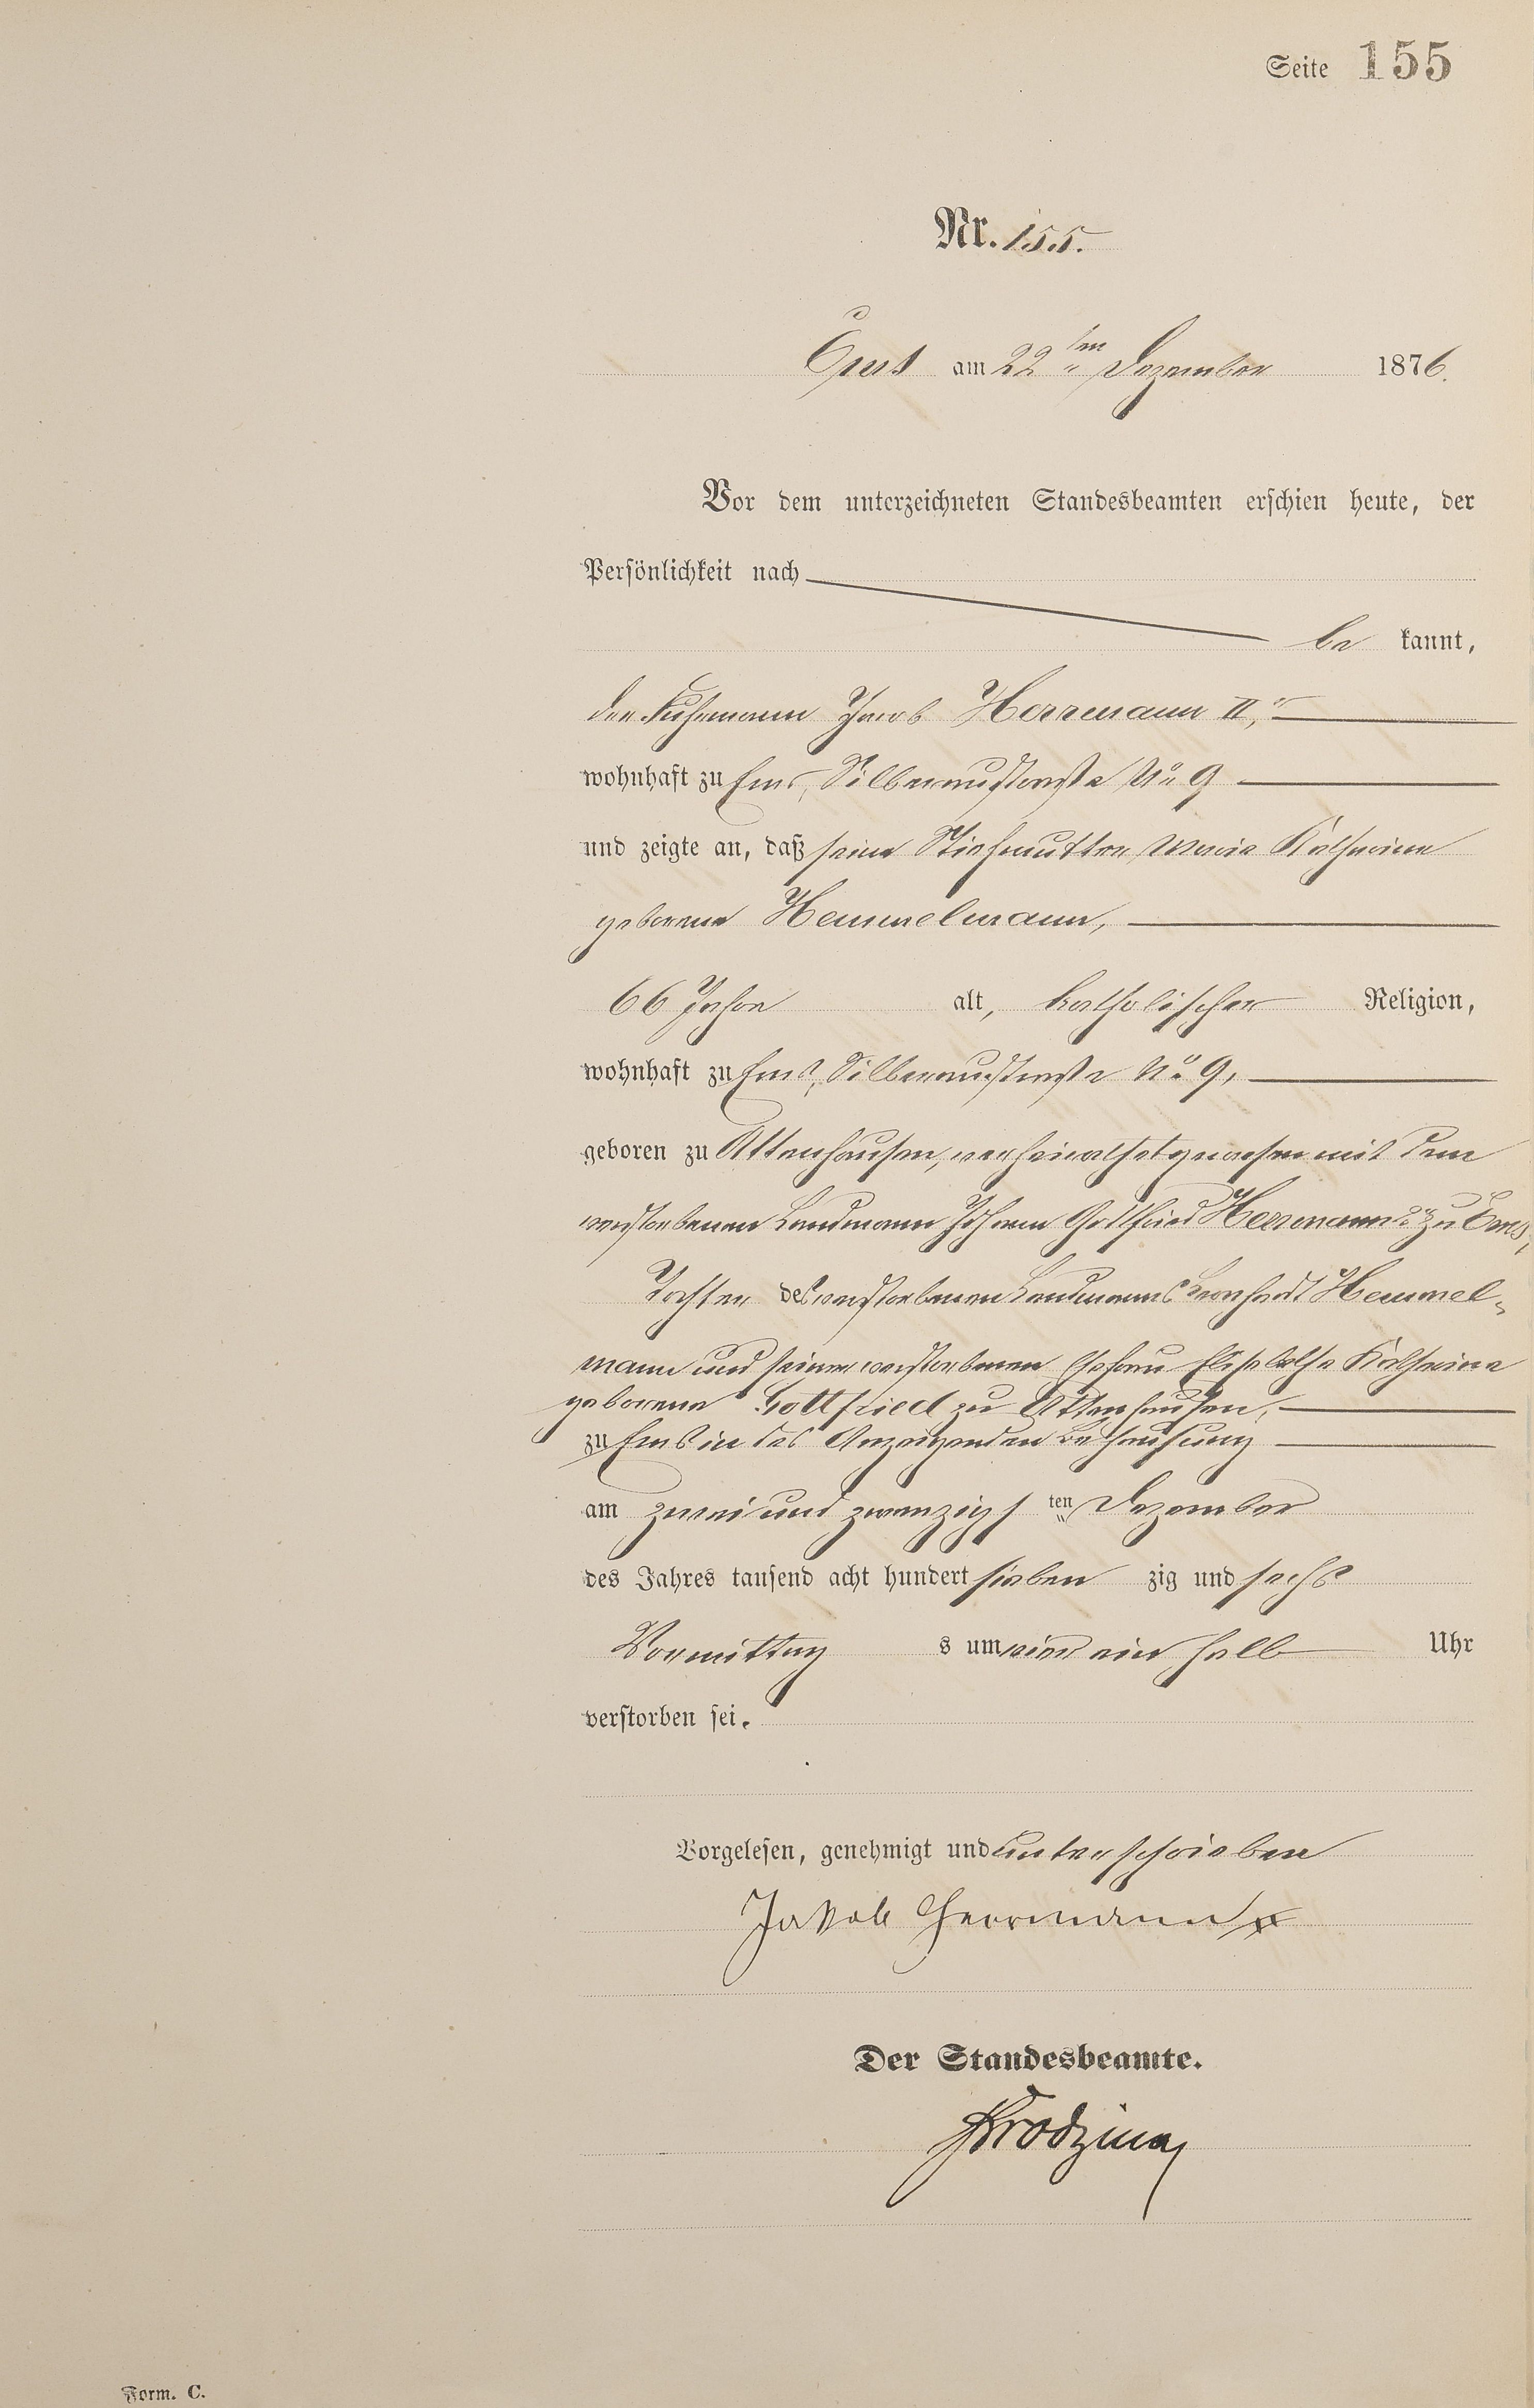 Seite 155
Nr. 155.
Ems am 22ten Dezember 1876.
Vor dem unterzeichneten Standesbeamten erschien heute, der
Persönlichkeit nach
be kannt,
der Fuhrmann Jacob Herrmann II,
wohnhaft zu Ems, Silberaustraße No 9
und zeigte an, daß seine Stiefmutter, Maria Katharina
geborene Hemmelmann,
66 Jahre alt, katholischer Religion,
wohnhaft zu Ems, Silberaustraße No 9,
geboren zu Attenhausen, verheirathet gewesen mit dem
verstorbenen Landmann Johann Gottfried Herrmann zu Ems,
Tochter des verstorbenen Landmanns Leonhardt Hemmel-
mann und seiner verstorbenen Ehefrau Elisabetha Katharina
geborene Gottfried zu Attenhausen,
zu Ems in des Anzeigenden Behausung
am zwei und zwanzigsten Dezember
des Jahres tausend acht hundert sieben zig und sechs
Vormittag s um vier ein halb Uhr
verstorben sei.
Vorgelesen, genehmigt und unterschrieben
Jakob Herrmann
Der Standesbeamte.
Form. C.